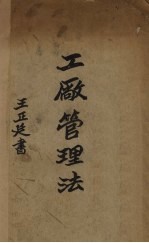 工廠管理法
王正廷書